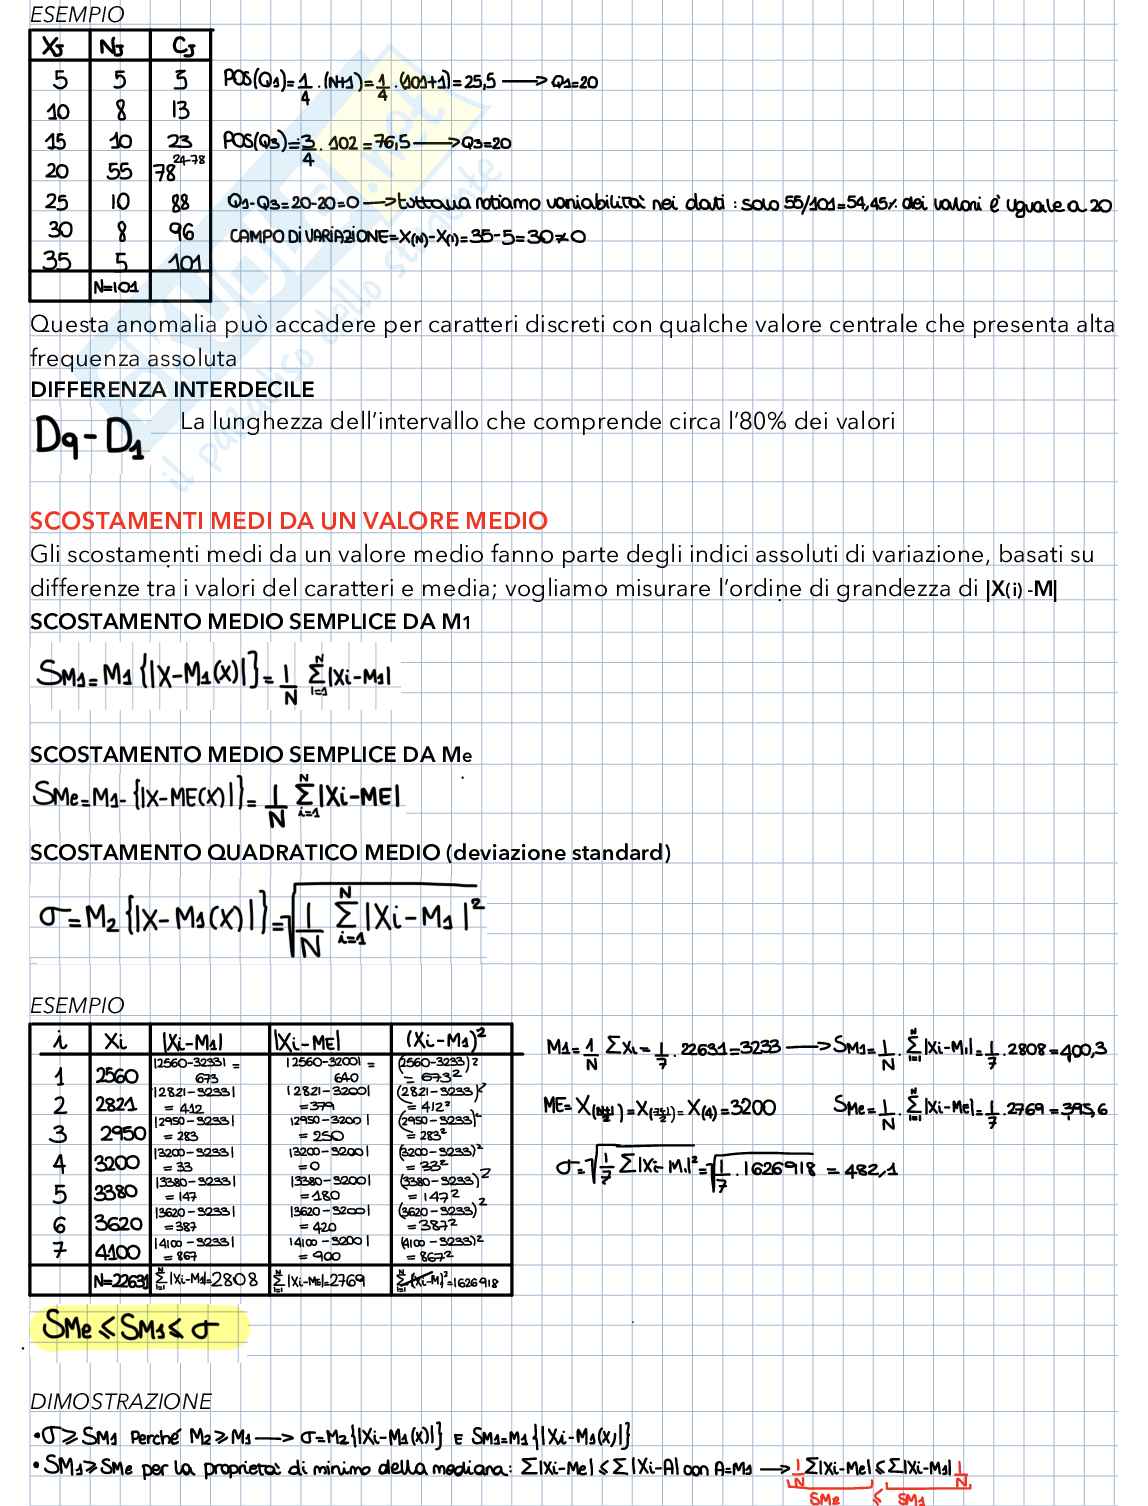 ESEMPIO
XJ NJ CJ
5 5 5
10 8 13
15 10 23
20 55 78 24-78
25 10 88
30 8 96
35 5 101
N=101
POS(Q1)=1/4·(N+1)=1/4·(101+1)=25,5 → Q1=20
POS(Q3)=3/4·102=76,5 → Q3=20
Q1-Q3=20-20=0 → tuttavia notiamo variabilità nei dati: solo 55/101=54,45% dei valori è uguale a 20
CAMPO DI VARIAZIONE=X(N)-X(1)=35-5=30≠0
Questa anomalia può accadere per caratteri discreti con qualche valore centrale che presenta alta
frequenza assoluta
DIFFERENZA INTERDECILE
D9-D1 La lunghezza dell'intervallo che comprende circa l'80% dei valori
SCOSTAMENTI MEDI DA UN VALORE MEDIO
Gli scostamenti medi da un valore medio fanno parte degli indici assoluti di variazione, basati su
differenze tra i valori del caratteri e media; vogliamo misurare l'ordine di grandezza di |X(i) -M|
SCOSTAMENTO MEDIO SEMPLICE DA M1
SM1=M1{|X-M1(X)|}=1/N Σ i=1 N |Xi-M1|
SCOSTAMENTO MEDIO SEMPLICE DA Me
SMe=M1-{|X-ME(X)|}=1/N Σ i=1 N |Xi-ME|
SCOSTAMENTO QUADRATICO MEDIO (deviazione standard)
σ=M2{|X-M1(X)|}=√1/N Σ i=1 N |Xi-M1|²
ESEMPIO
i Xi |Xi-M1| |Xi-ME| (Xi-M1)²
1 2560 |2560-3233|=673 |2560-3200|=640 (2560-3233)²=673²
2 2821 |2821-3233|=412 |2821-3200|=379 (2821-3233)²=412²
3 2950 |2950-3233|=283 |2950-3200|=250 (2950-3233)²=283²
4 3200 |3200-3233|=33 |3200-3200|=0 (3200-3233)²=33²
5 3380 |3380-3233|=147 |3380-3200|=180 (3380-3233)²=147²
6 3620 |3620-3233|=387 |3620-3200|=420 (3620-3233)²=387²
7 4100 |4100-3233|=867 |4100-3200|=900 (4100-3233)²=867²
N=22631 Σ i=1 N |Xi-M1|=2808 Σ i=1 N |Xi-ME|=2769 Σ i=1 N (Xi-M1)²=1626918
M1=1/N ΣXi=1/7·22631=3233 → SM1=1/N·Σ i=1 N |Xi-M1|=1/7·2808=400,3
ME=X(N+1/2)=X(7+1/2)=X(4)=3200 SMe=1/N·Σ i=1 N |Xi-Me|=1/7·2769=395,6
σ=√1/7 Σ|Xi-M1|²=√1/7·1626918=482,1
SMe≤SM1≤σ
DIMOSTRAZIONE
•σ≥SM1 Perché M2≥M1 → σ=M2{|Xi-M1(X)|} E SM1=M1{|Xi-M1(X)|}
•SM1≥SMe per la proprietà di minimo della mediana: Σ|Xi-Me|≤Σ|Xi-A| con A=M1 → 1/N Σ|Xi-Me|≤Σ|Xi-M1| 1/N
SMe ≤ SM1